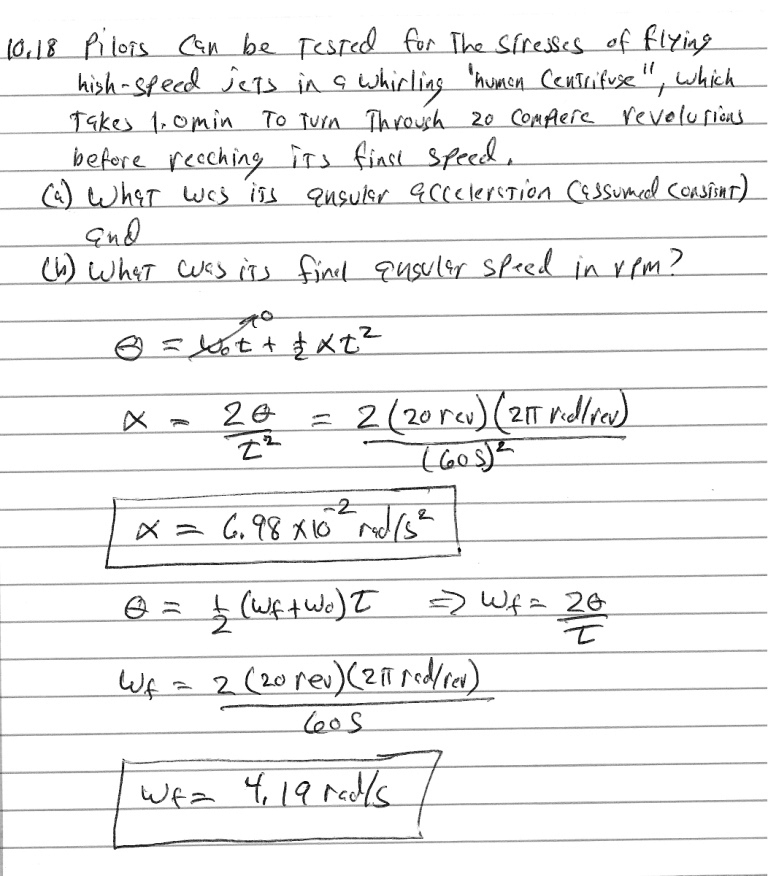 10.18 Pilots can be Tested for The stresses of flying
high-speed jets in a whirling "human Centrifuge", which
Takes 1.0min To Turn Through 20 Complete revolutions
before reaching iTs final speed.
(a) What was its angular acceleration (assumed constant)
and
(b) What was its final angular speed in rpm?
θ = ω₀t + ½ αt² →0
α = 2θ/t² = 2(20 rev)(2π rad/rev)/(60s)²
α = 6.98 x10⁻² rad/s²
θ = ½ (ωf+ω₀)t ⇒ ωf = 2θ/t
ωf = 2(20 rev)(2π rad/rev)/60s
ωf = 4.19 rad/s